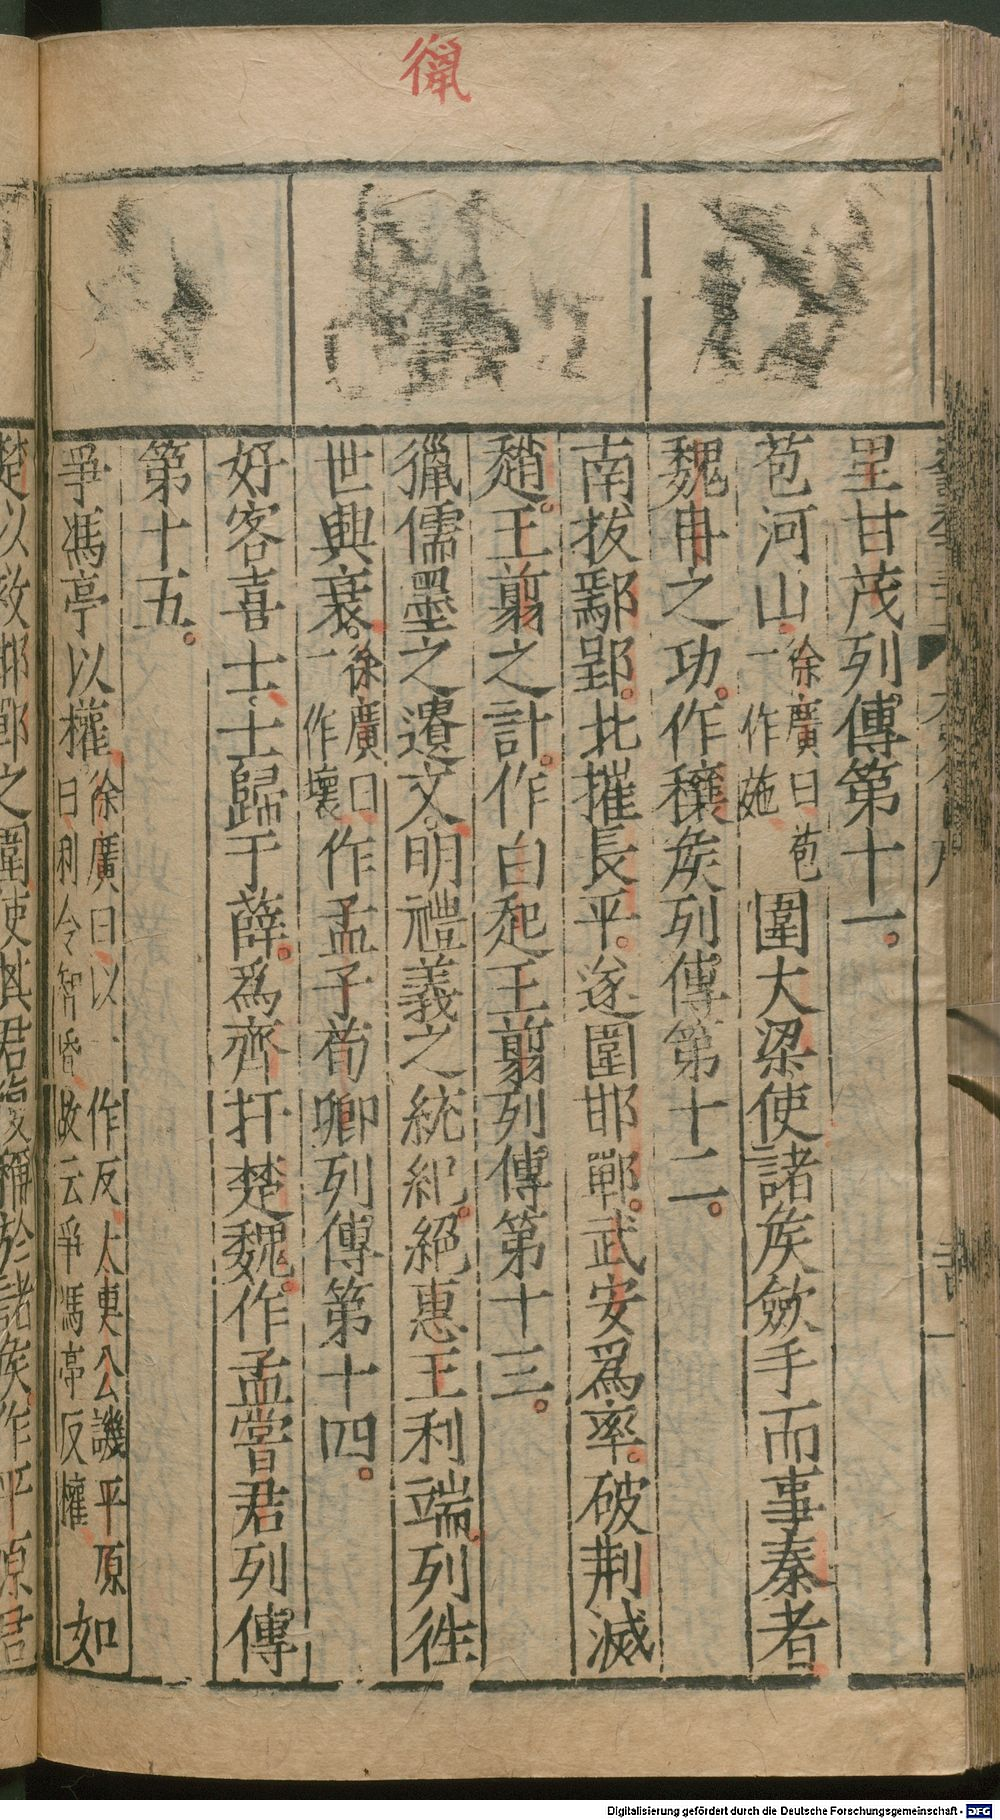 里甘茂列傳第十一。
苞河山徐廣曰苞一作施圍大梁使諸矦斂手而事秦者
魏冉之功。作穰矦列傳第十二。
南拔鄢郢。北摧長平。遂圍邯鄲。武安爲率。破荆滅
趙。王翦之計。作白起王翦列傳第十三。
獵儒墨之遺文。明禮義之統紀。絕惠王利端。列徃
世興衰。徐廣曰一作壞作孟子荀卿列傳第十四。
好客喜士、士歸于薛。爲齊扞楚魏。作孟嘗君列傳
第十五。
爭馮亭以權徐廣曰以一作反太史公譏平原曰利令智昏故云爭馮亭反權如
楚以救邯鄲之圍使其君復稱於諸矦作平原君
Digitalisierung gefördert durch die Deutsche Forschungsgemeinschaft - DFG